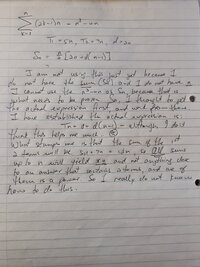 ∑ (2k-1)n = n³ - un
k=1
T₁ = 5n, T₂ = 7n, d = 2n
Sn = n/2 [2a + d(n-1)]
I am not using this just yet because I
do not have the sum (Sn) and I do not have n
I cannot use the n³-un as Sn, because that is
what needs to be proven. So I thought to get
the actual expression first, and work from there.
I have established the actual expression is:
Tn = a + d(n-1) - although I don't
think this helps me much. ☹
What stumps me is that the sum of the 1st
2 terms will be 5n + 7n = 12n, so all sums
up to n will yield xn and not anything close
to an answer that contains 2 terms, and one of
them is a power. So I really do not know
how to do this.